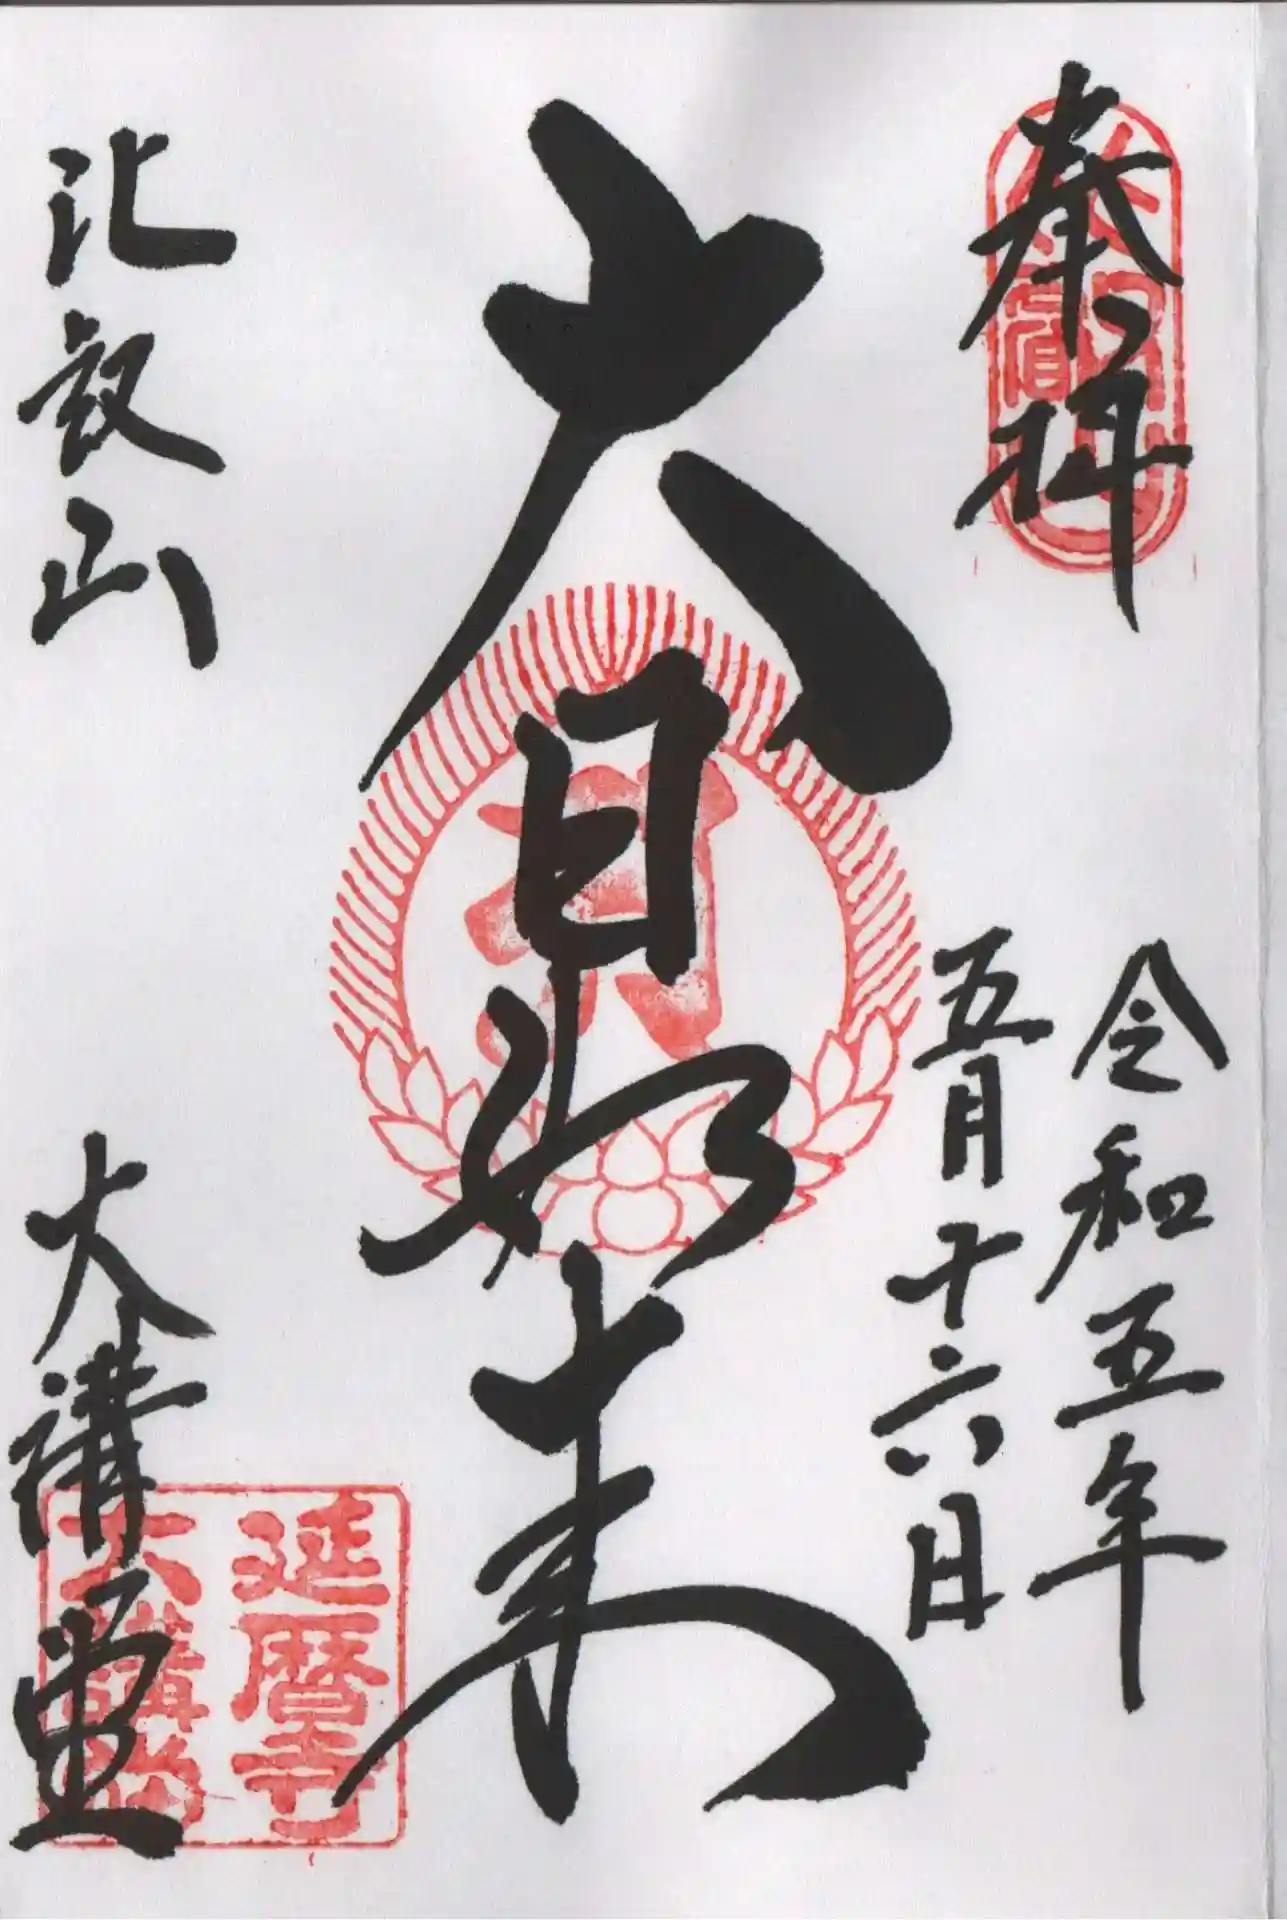 奉拝
令和五年
五月十六日
大日如来
比叡山
大講堂
延暦寺
大講堂